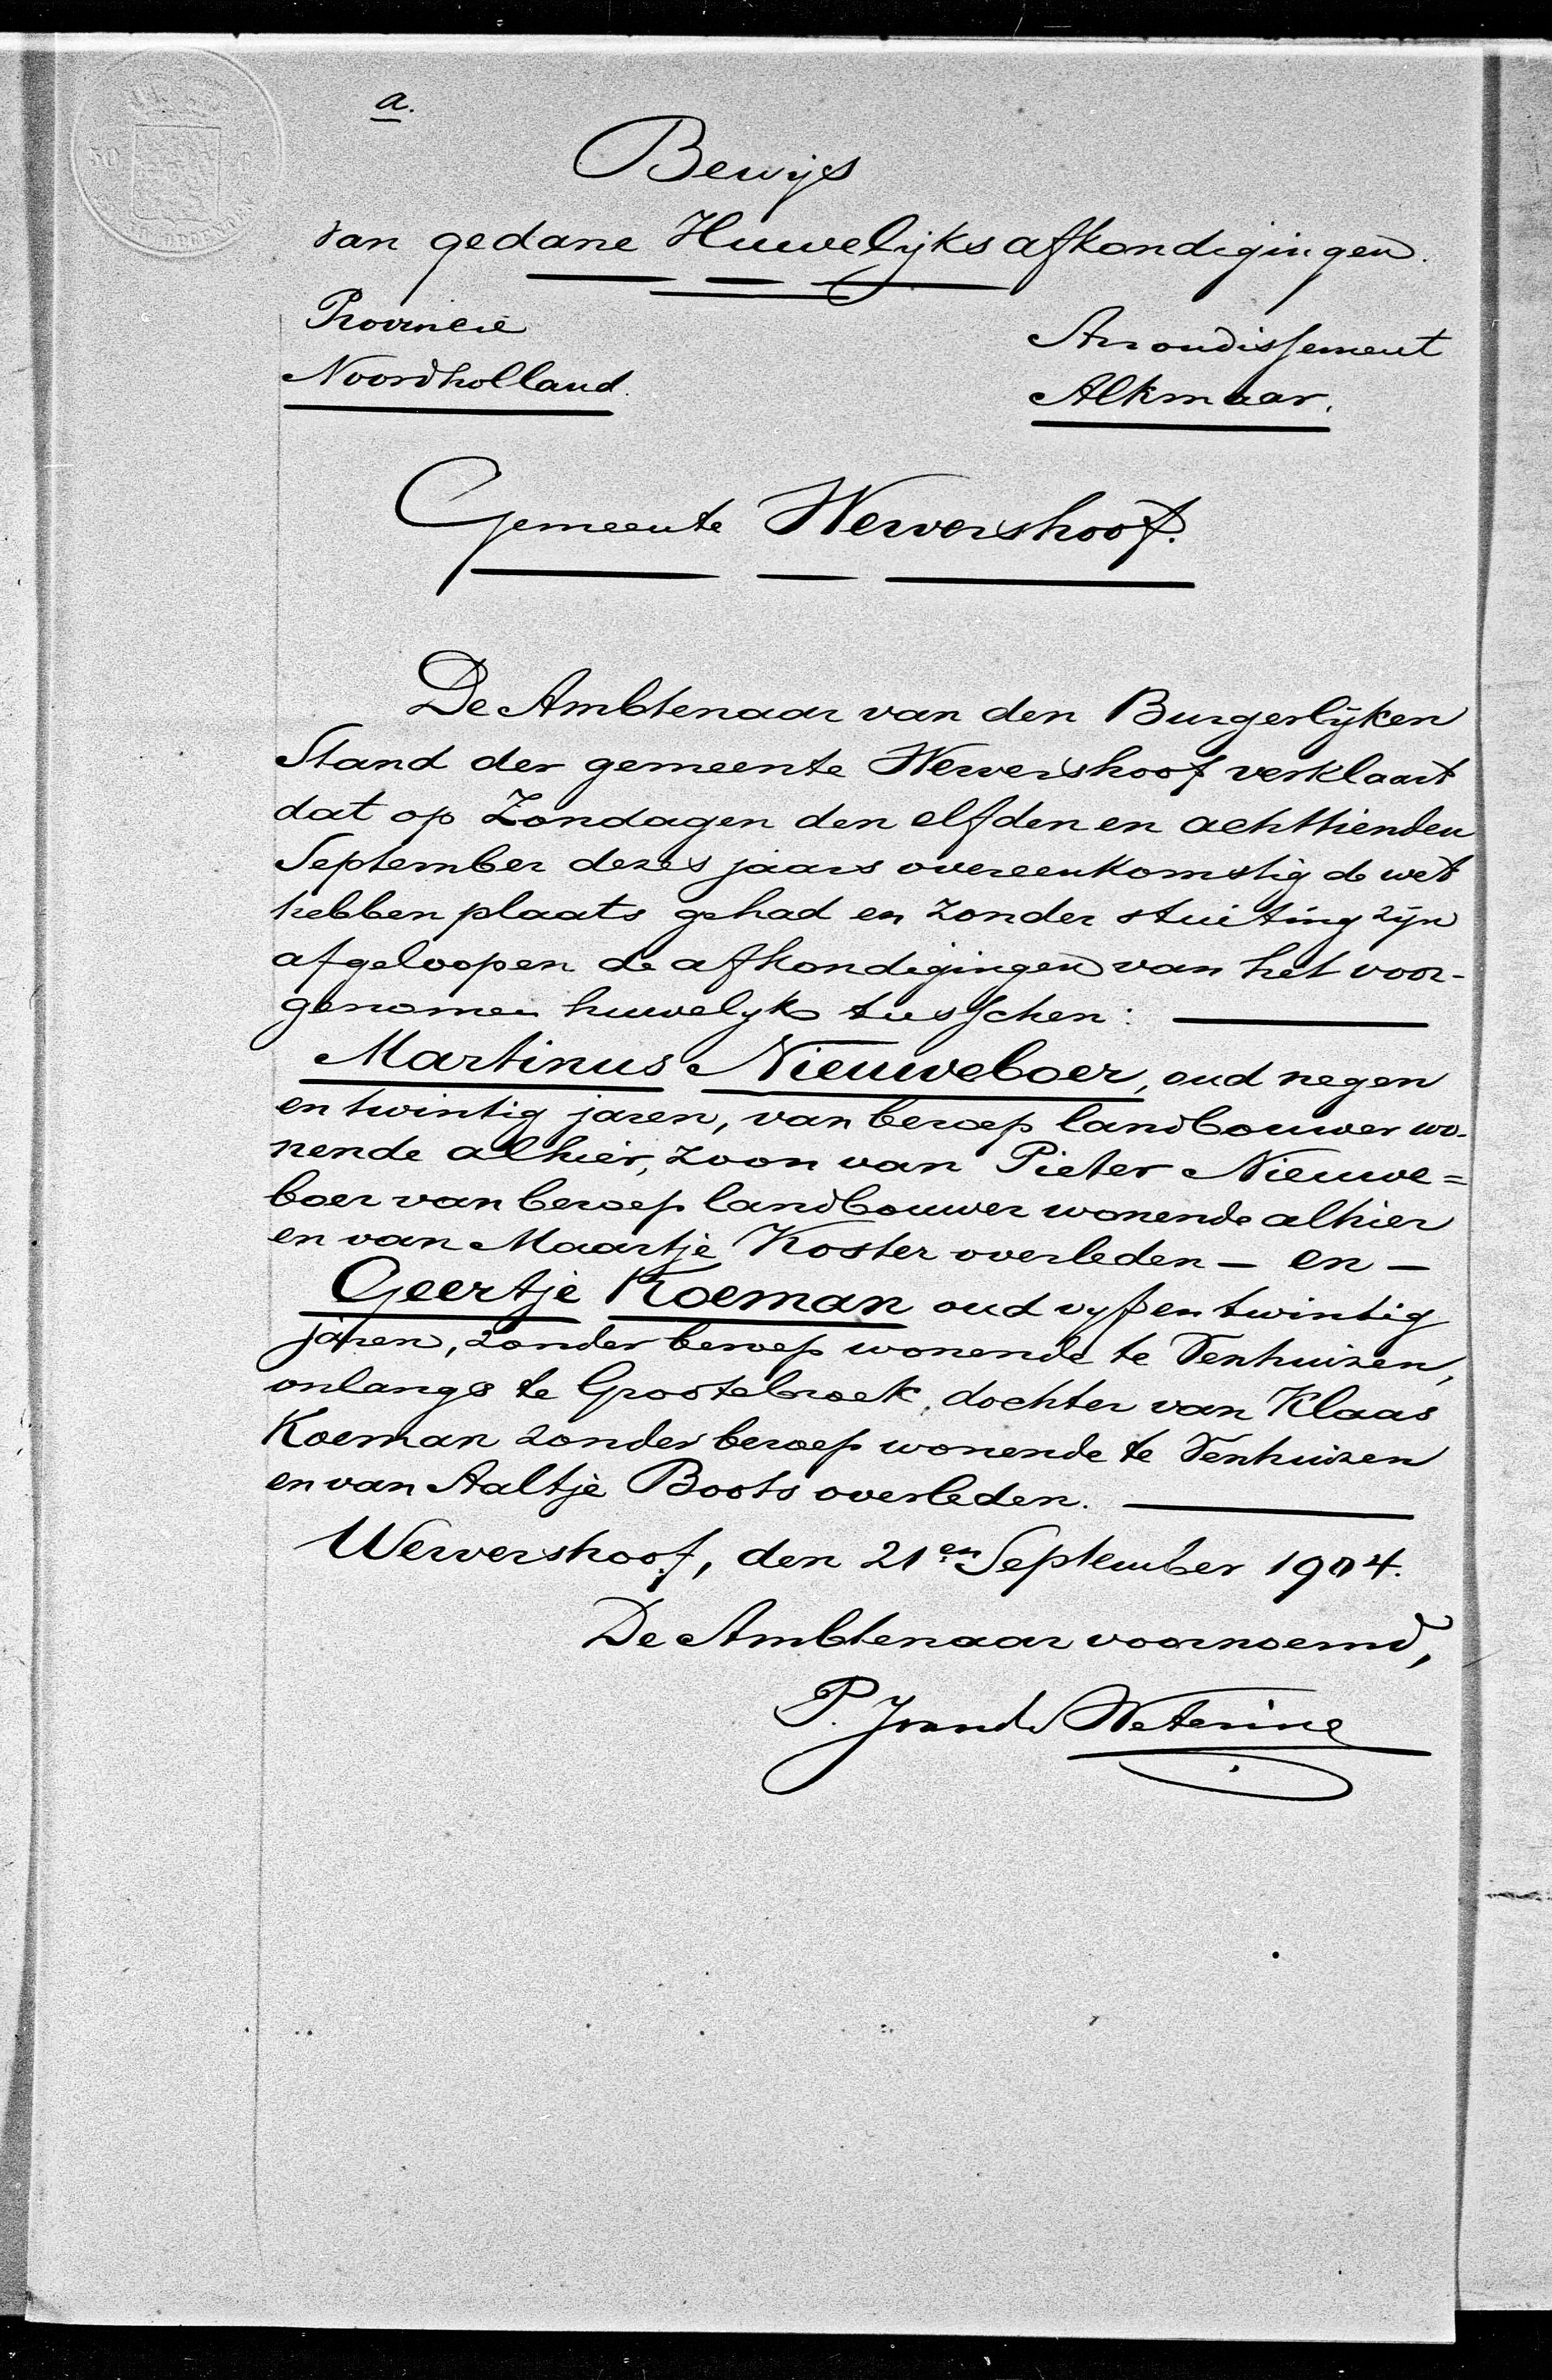 a.
Bewijs
van gedane Huwelijksafkondigingen.
Provincie
Noordholland.
Arrondissement
Alkmaar.
Gemeente Wervershoof.
De Ambtenaar van den Burgerlijken
Stand der gemeente Wervershoof verklaart
dat op Zondagen den elfden en achttienden
September dezes jaars overeenkomstig de wet
hebben plaats gehad en zonder stuiting zijn
afgeloopen de afkondigingen van het voor-
genomen huwelijk tusschen:
Martinus Nieuweboer, oud negen
en twintig jaren, van beroep landbouwer wo-
nende alhier, zoon van Pieter Nieuwe=
boer van beroep landbouwer wonende alhier
en van Maartje Koster overleden — en —
Geertje Koeman oud vyf en twintig
jaren, zonder beroep wonende te Venhuizen,
onlangs te Grootebroek, dochter van Klaas
Koeman zonder beroep wonende te Venhuizen
en van Aaltje Boots overleden.
Wervershoof, den 21en September 1904.
De Ambtenaar voornoemd,
P. J van de Wetering